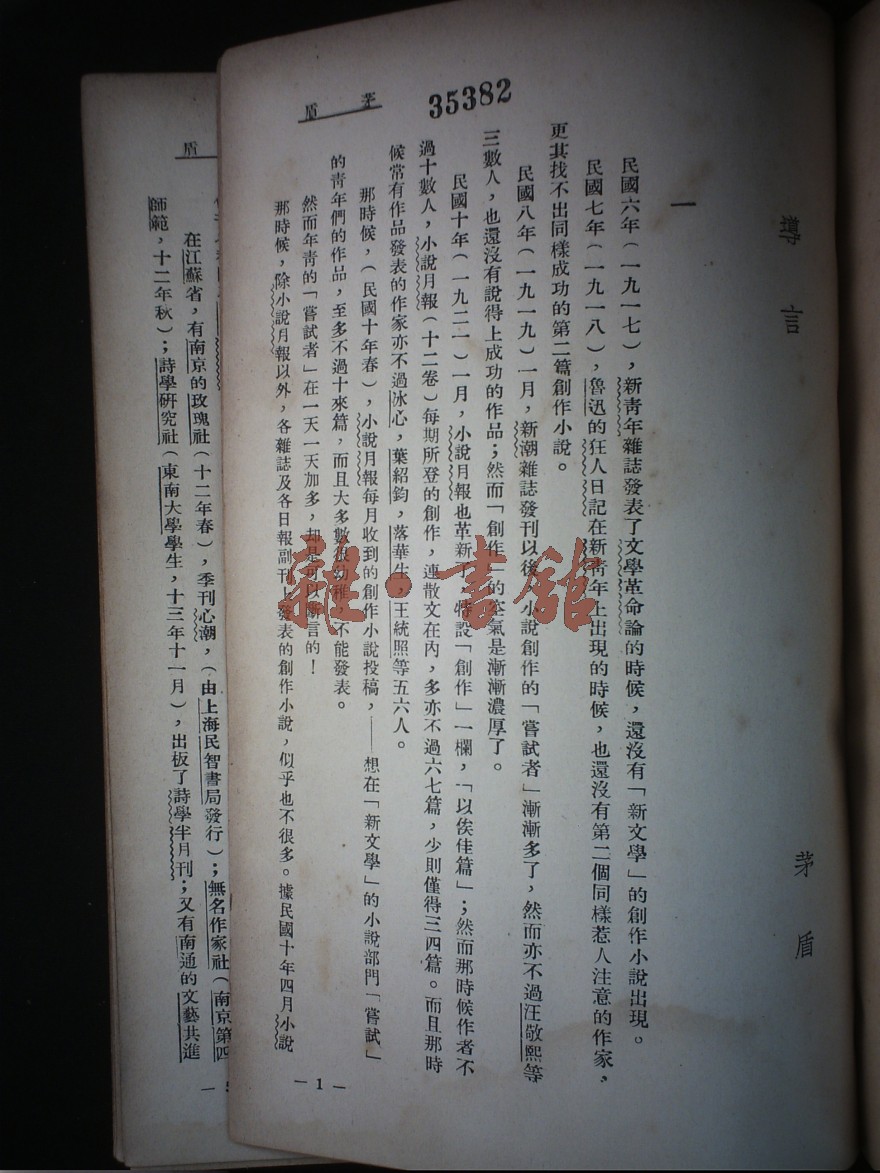 導言
茅盾
一
民國六年（一九一七），新青年雜誌發表了文學革命論的時候，還沒有「新文學」的創作小說出現。
民國七年（一九一八），魯迅的狂人日記在新青年上出現的時候，也還沒有第二個同樣惹人注意的作家，
更其找不出同樣成功的第二篇創作小說。
民國八年（一九一九）一月，新潮雜誌發刊以後，小說創作的「嘗試者」漸漸多了，然而亦不過汪敬熙等
三數人，也還沒有說得上成功的作品；然而「創作」的空氣是漸漸濃厚了。
民國十年（一九二一）一月，小說月報也革新了，特設「創作」一欄，「以俟佳篇」；然而那時候作者不
過十數人，小說月報（十二卷）每期所登的創作，連散文在內，多亦不過六七篇，少則僅得三四篇。而且那時
候常有作品發表的作家亦不過冰心，葉紹鈞，落華生，王統照等五六人。
那時候，（民國十年春），小說月報每月收到的創作小說投稿，——想在「新文學」的小說部門「嘗試」
的青年們的作品，至多不過十來篇，而且大多數很幼稚，不能發表。
然而年青的「嘗試者」在一天一天加多，却是可以斷言的！
那時候，除小說月報以外，各雜誌及各日報副刊上發表的創作小說，似乎也不很多。據民國十年四月小說
茅盾
35382
—1—
盾
在江蘇省，有南京的玫瑰社（十二年春），季刊心潮，（由上海民智書局發行）；無名作家社（南京第四
師範，十二年秋）；詩學研究社（東南大學學生，十三年十一月），出板了詩學半月刊；又有南通的文藝共進
雜·書館